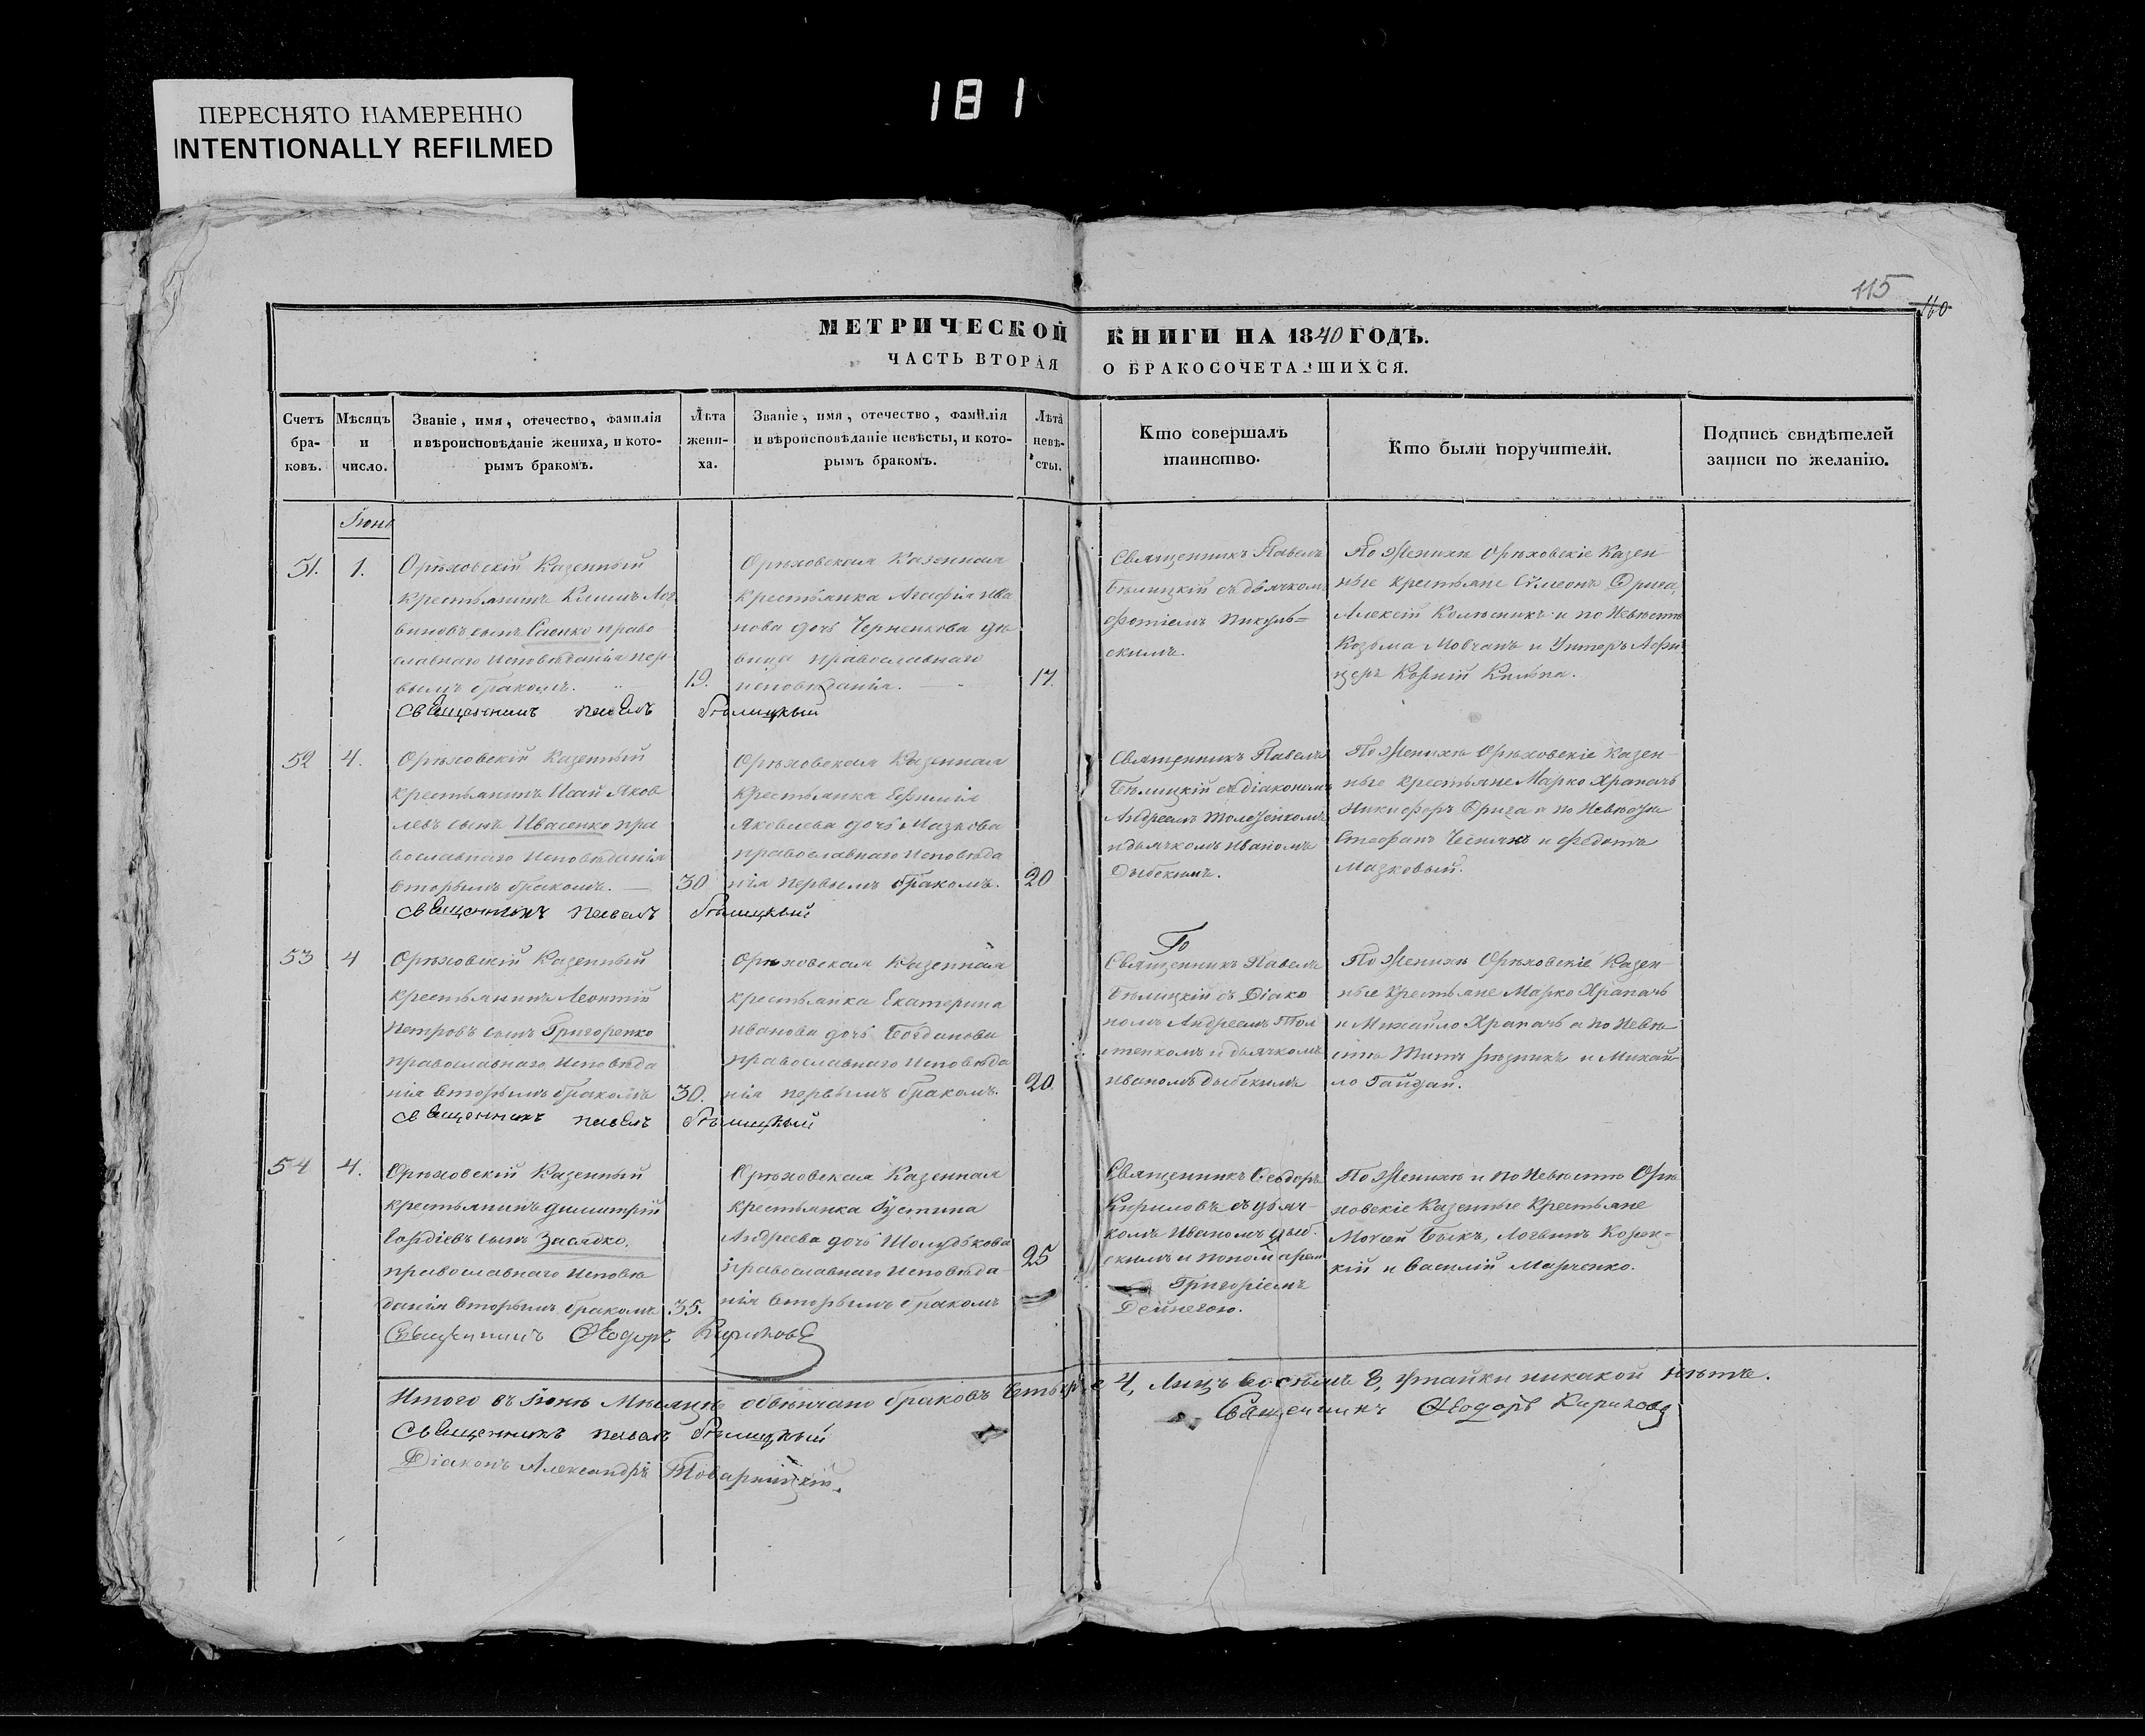 181
ПЕРЕСНЯТО НАМЕРЕННО
INTENTIONALLY REFILMED
115
110
МЕТРИЧЕСКОЙ КНИГИ НА 1840 ГОДЪ.
ЧАСТЬ ВТОРАЯ О БРАКОСОЧЕТАВШИХСЯ.
Счетъ
бра-
ковъ.
Мѣсяцъ
и
число.
Званіе, имя, отечество, фамилія
и вѣроисповѣданіе жениха, и кото-
рымъ бракомъ.
Лѣта
жени-
ха.
Званіе, имя, отечество, фамилія
и вѣроисповѣданіе невѣсты, и кото-
рымъ бракомъ.
Лѣта
невѣ-
сты.
Кто совершалъ
таинство.
Кто были поручители.
Подпись свидѣтелей
записи по желанію.
Іюнь
51.
1.
Орѣховскій Казенный
крестьянинъ Климъ Лог
виновъ сынъ Саенко право
славнаго исповѣданія пер
вымъ бракомъ.
19.
Орѣховская Казенная
крестьянка Агафія Ива
нова дочь Черненкова дѣ
вица православнаго
исповѣданія.
17.
Священникъ Павелъ
Бѣлицкій съ дьячкомъ
Фотіемъ Пикуль=
скимъ.
По Женихѣ Орѣховскіе Казен
ные крестьяне Сѵмеонъ Дрига,
Алексій Колѣсникъ и по Невѣстѣ
Козьма Мовчанъ и Унтеръ Афи
церъ Корній
Священникъ Павелъ Бѣлицкый
52
4.
Орѣховскій Казенный
крестьянинъ Исай Яков
левъ сынъ Ивасенко пра
вославнаго исповѣданія
вторымъ бракомъ.
30
Орѣховская Казенная
Крестьянка Ефимія
Яковлева дочь Мазкова
православнаго исповѣда
нія первымъ бракомъ.
20
Священникъ Павелъ
Бѣлицкій съ діакономъ
Андреемъ
и дьячкомъ Иваномъ
Дыбскимъ.
По Женихѣ Орѣховскіе Казен
ные крестьяне Марко Храпачъ
Никифоръ Дрига а по Невѣстѣ
Стефанъ и Федотъ
Мазковый.
Священникъ Павелъ Бѣлицкый
53
4
Орѣховскій Казенный
крестьянинъ Леонтій
Петровъ сынъ Григоренко
православнаго исповѣда
нія вторымъ бракомъ
30.
Орѣховская Казенная
крестьянка Екатерина
Иванова дочь Богданова
православнаго исповѣда
нія первымъ бракомъ.
20
То
Священникъ Павелъ
Бѣлицкій съ Діако
номъ Андреемъ Тол
стенкомъ и дьячкомъ
Иваномъ Дыбскимъ
По Женихѣ Орѣховскіе Казен
ные Крестьяне Марко Храпачъ
и Михайло Храпачъ а по Невѣ
стѣ Титъ Рѣзникъ и Михай
ло Гайдай.
Священникъ Павелъ Бѣлицкый
54
4.
Орѣховскій Казенный
крестьянинъ Димитрій
Гордіевъ сынъ Засядко.
православнаго исповѣ
данія вторымъ бракомъ
35.
Орѣховская Казенная
крестьянка Іустина
Андреева дочь Шолудькова
православнаго исповѣда
нія вторымъ бракомъ
25
Священникъ Ѳеодоръ
Кириловъ съ дьяч-
комъ Иваномъ Дыб
скимъ и пономаремъ
Григоріемъ
Дейнегою.
По Женихѣ и по Невѣстѣ Орѣ
ховскіе Казенные Крестьяне
Мочей Быкъ, Логвинъ
кій и Василій Марченко.
Священникъ Ѳеодоръ Кириловъ
Итого въ Іюнѣ Мѣсяцѣ обвѣнчано браковъ четыре 4, лицъ восемь 8, утайки никакой нѣтъ.
Священникъ Павелъ Бѣлицкый
Священникъ Ѳеодоръ Кириловъ
Діаконъ Александръ Товарницкій.